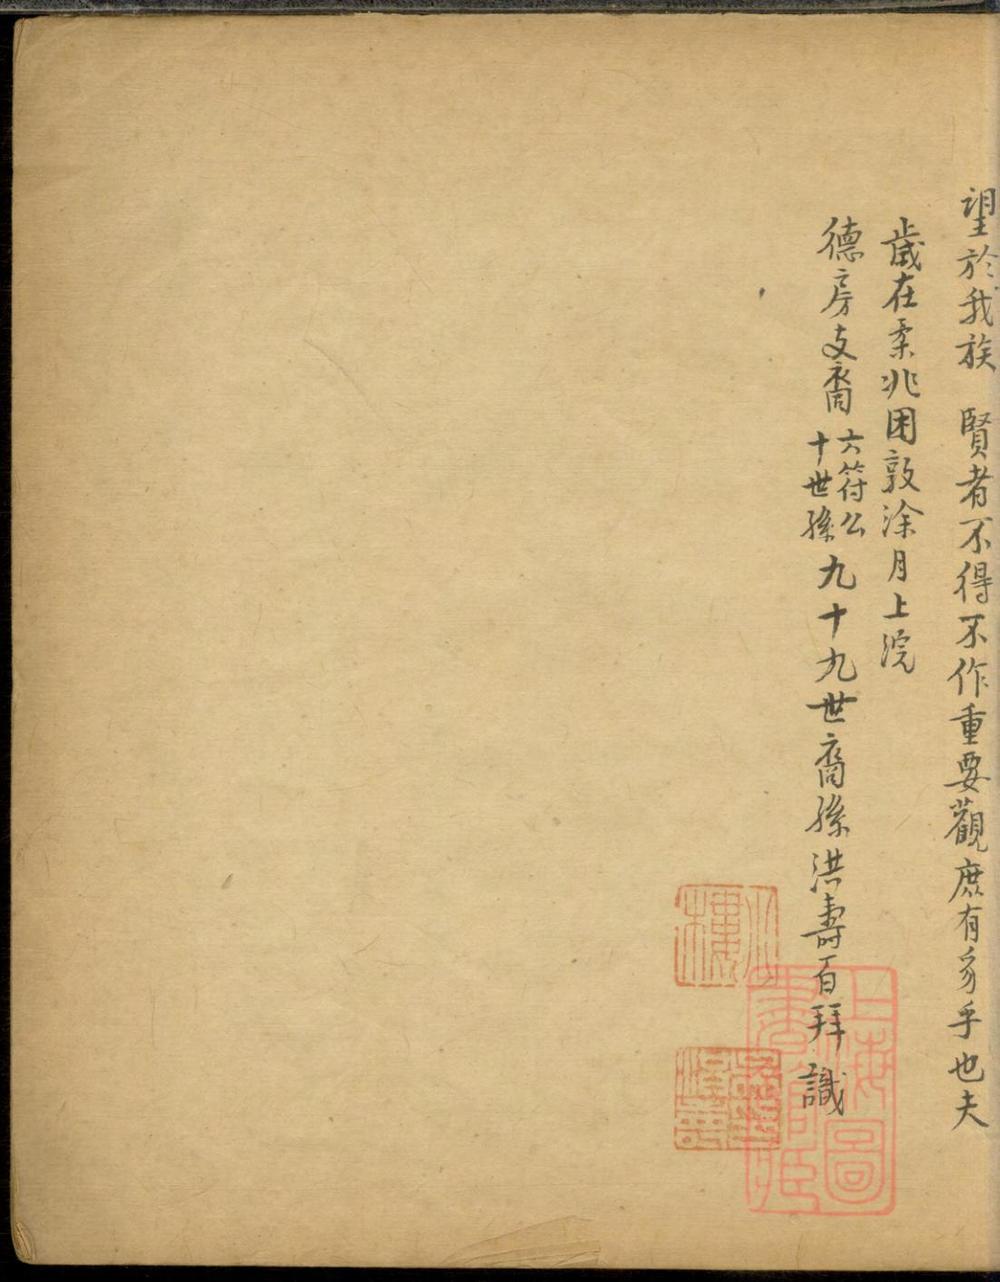 望於我族 賢者不得不作重要觀庶有豸乎也夫
歲在柔兆困敦涂月上浣
德房支裔
六符公
十世孫
九十九世裔孫洪壽百拜識
上海圖書館藏